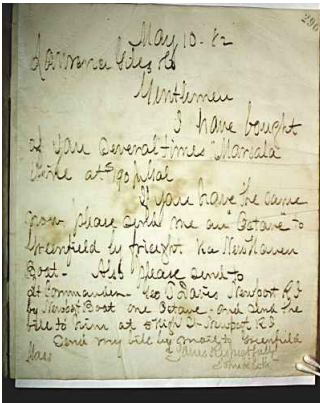 296
May 10 - 82
Lawrence Giles & Co
Gentlemen
I have bought
of you several times "Marsala
Wine at $ 1.90 p Gal
If you have the same
now please send me an "Octave" to
Greenfield by freight. via New Haven
Boat - Also please send to
Lt Commander - Geo Davis Newport R I
by Newport Boat one Octave - and send the
bill to him at 5 High St - Newport R I
Send my bill by mail to Greenfield
Mass Yours Respectfully